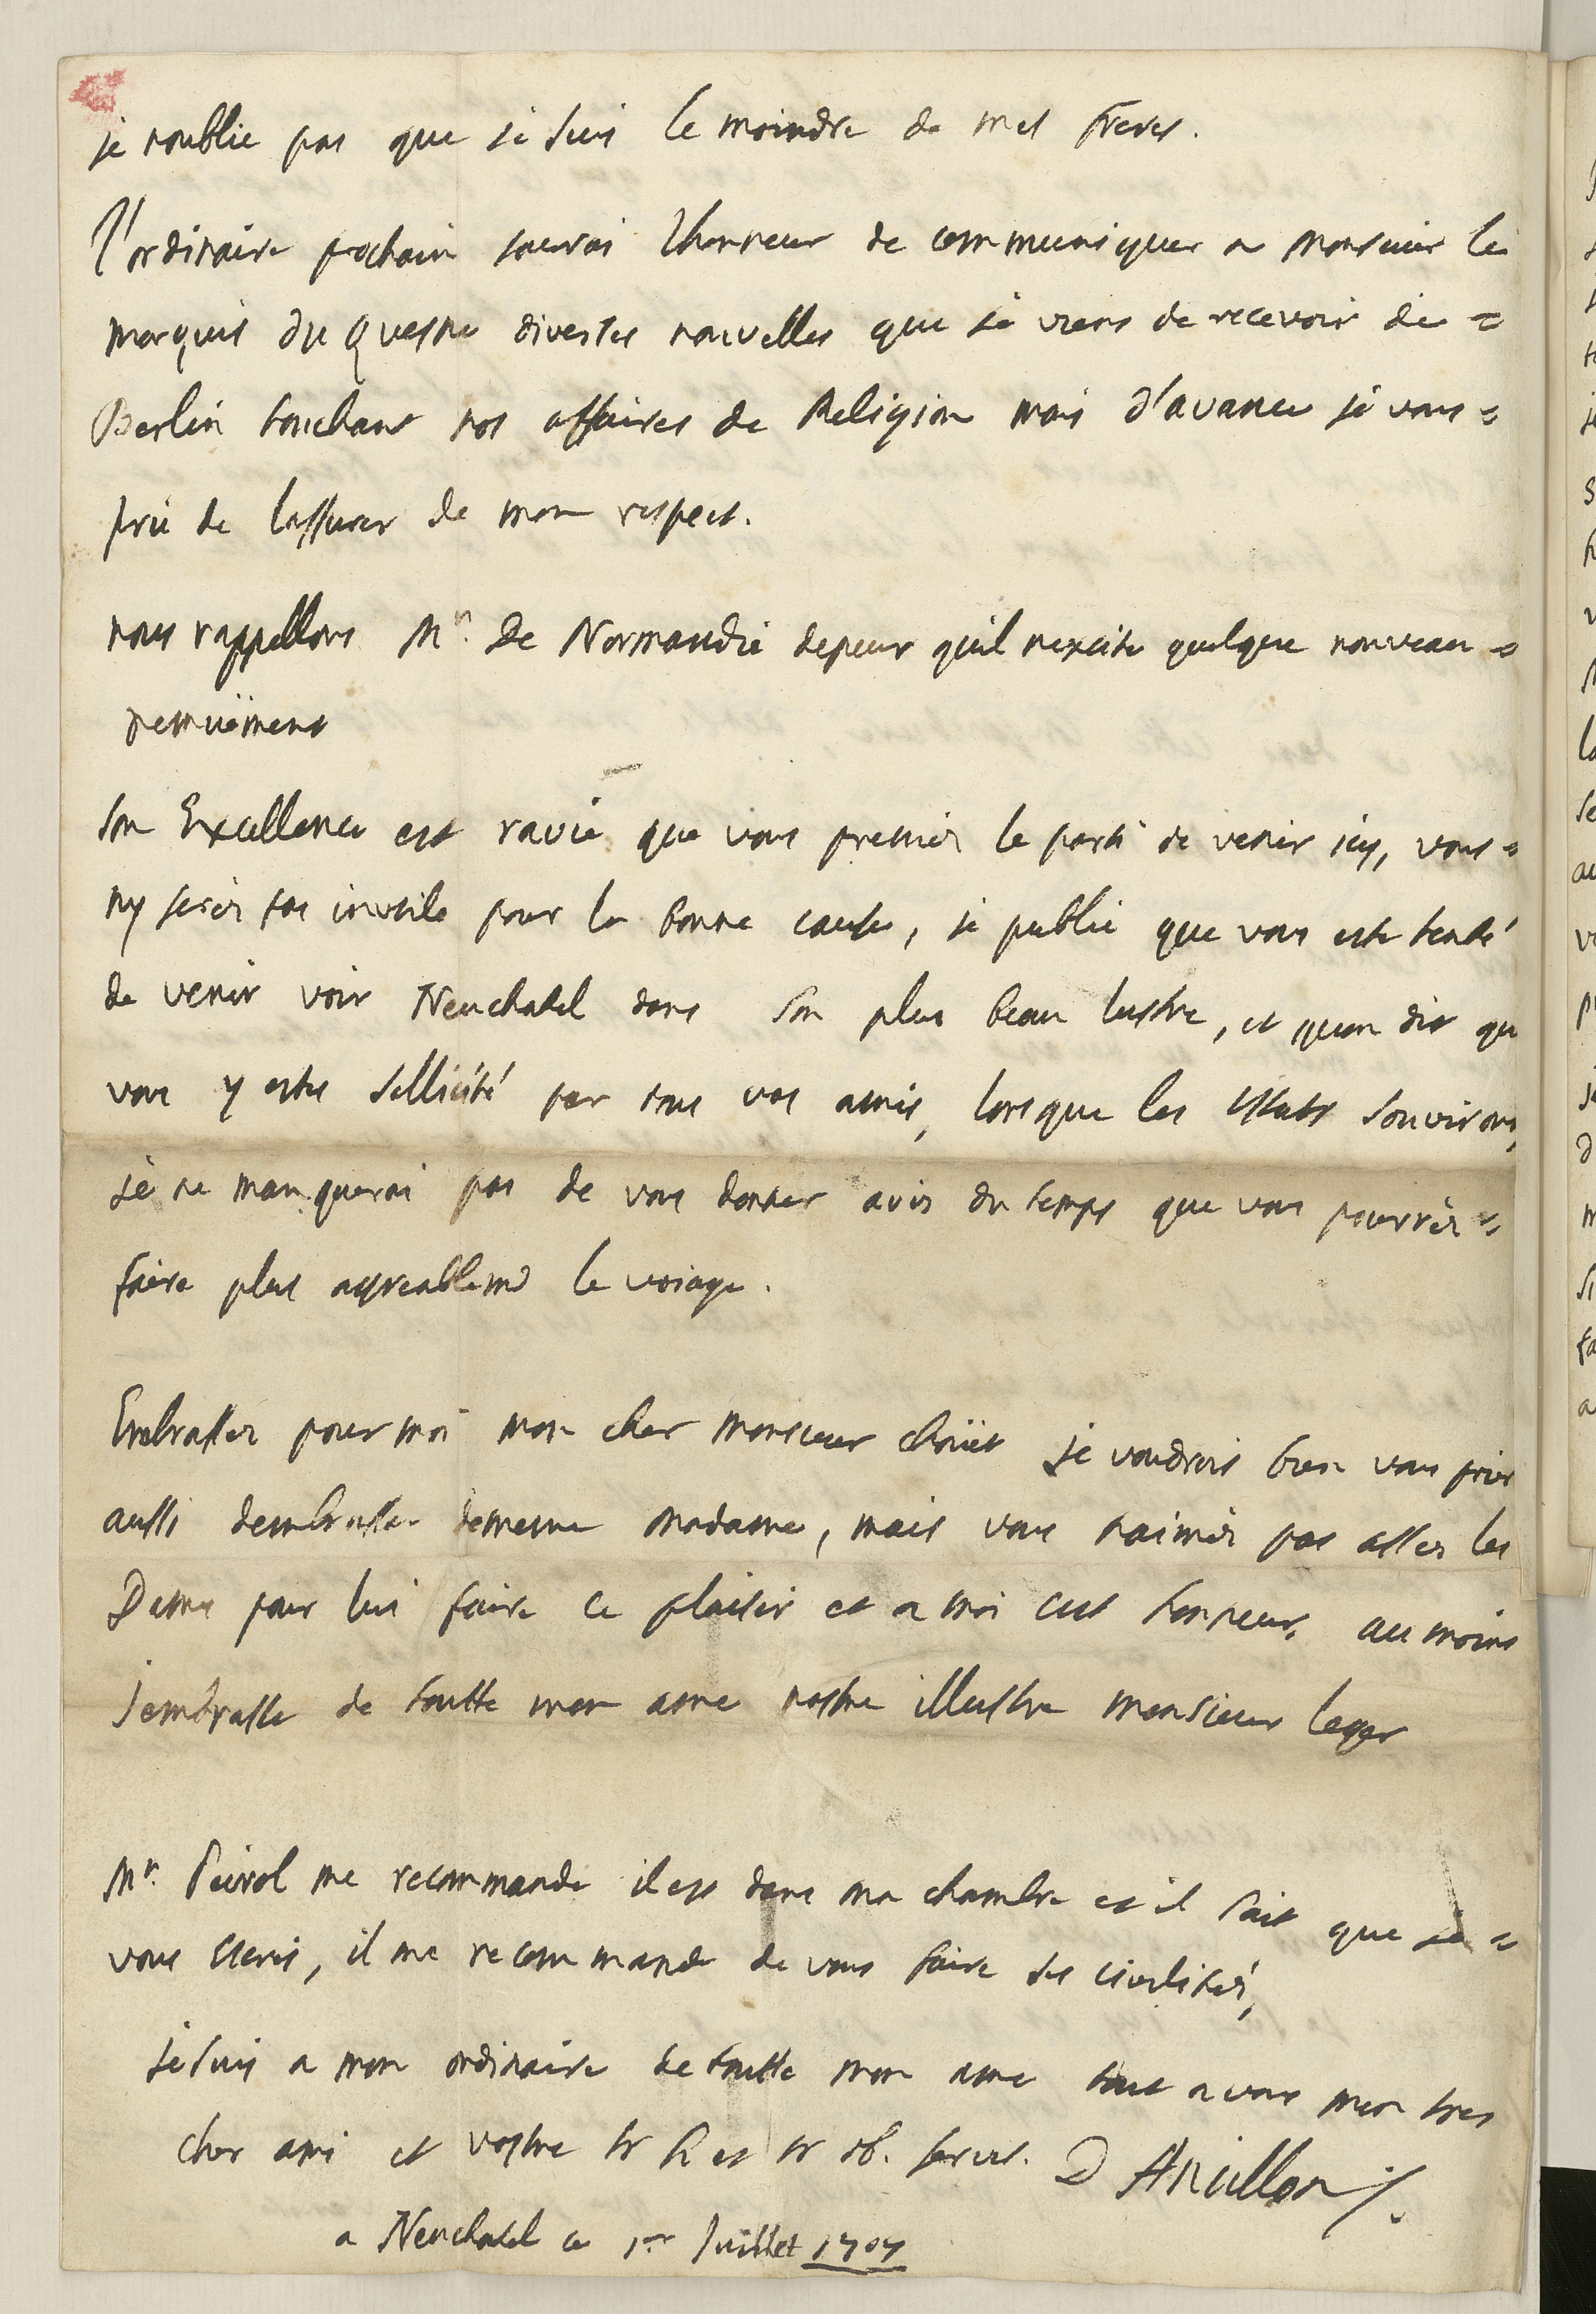 je noublie pas que je suis le moindre de mes freres.
l'ordinaire prochain jaurai lhonneur de communiquer a monsieur le
marquis du Quesne diverses nouvelles que je viens de recevoir de =
Berlin touchant nos affaires de Religion mais d'avance je vous =
prie de lassurer de mon respect.
nous rappellons Mr. De Normandie depeur quil nexcite quelque nouveau =
remuëment
son Excellence est ravie que vous preniez le parti de venir icy, vous =
ny serez pas inutile pour la bonne cause, je publie que vous este tenté
de venir voir Neuchatel dans son plus beau lustre, et quon dit que
vous y estes sollicité par tous vos amis, lorsque les estats souvriront,
je ne manquerai pas de vous donner avis du temps que vous pourrez =
faire plus agreablemt le voiage.
Embrassez pour moi mon cher monsieur choüet je voudrois bien vous prier
aussi dembrasser demesme madame, mais vous naimez pas assez les
Dames pour lui faire ce plaisir et a moi cet honneur, au moins
jembrasse de toutte mon ame nostre illustre monsieur leger
Mr. Peirol me recommande il est dans ma chambre et il sait que je =
vous escris, il me recommande de vous faire ses civilités,
je suis a mon ordinaire de toutte mon ame tout a vous mon tres
cher ami et vostre tr h et tr ob. servit. D Ancillon
a Neuchatel ce 1er Juillet 1707